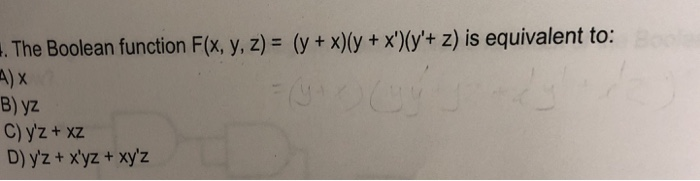 . The Boolean function F(x, y, z) = (y + x)(y + x')(y'+ z) is equivalent to:
A) x
B) yz
C) y'z + xz
D) y'z + x'yz + xy'z